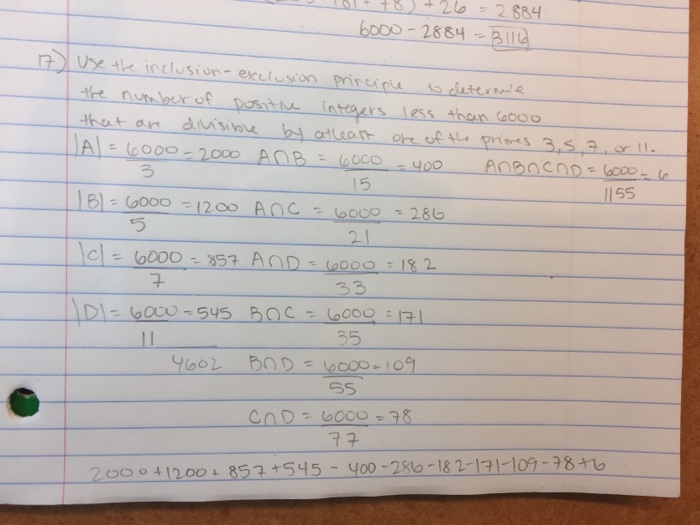 + 78) + 26 = 2884
6000 - 2884 = 3116
17) Use the inclusion-exclusion principle to determine
the number of positive integers less than 6000
that are divisible by atleast one of the primes 3, 5, 7, or 11.
|A| = 6000/3 = 2000 A∩B = 6000/15 = 400 A∩B∩C∩D = 6000/1155 = 6
|B| = 6000/5 = 1200 A∩C = 6000/21 = 286
|C| = 6000/7 = 857 A∩D = 6000/33 = 182
|D| = 6000/11 = 545 B∩C = 6000/35 = 171
4602 B∩D = 6000/55 = 109
C∩D = 6000/77 = 78
2000+1200+857+545-400-286-182-171-109-78+6